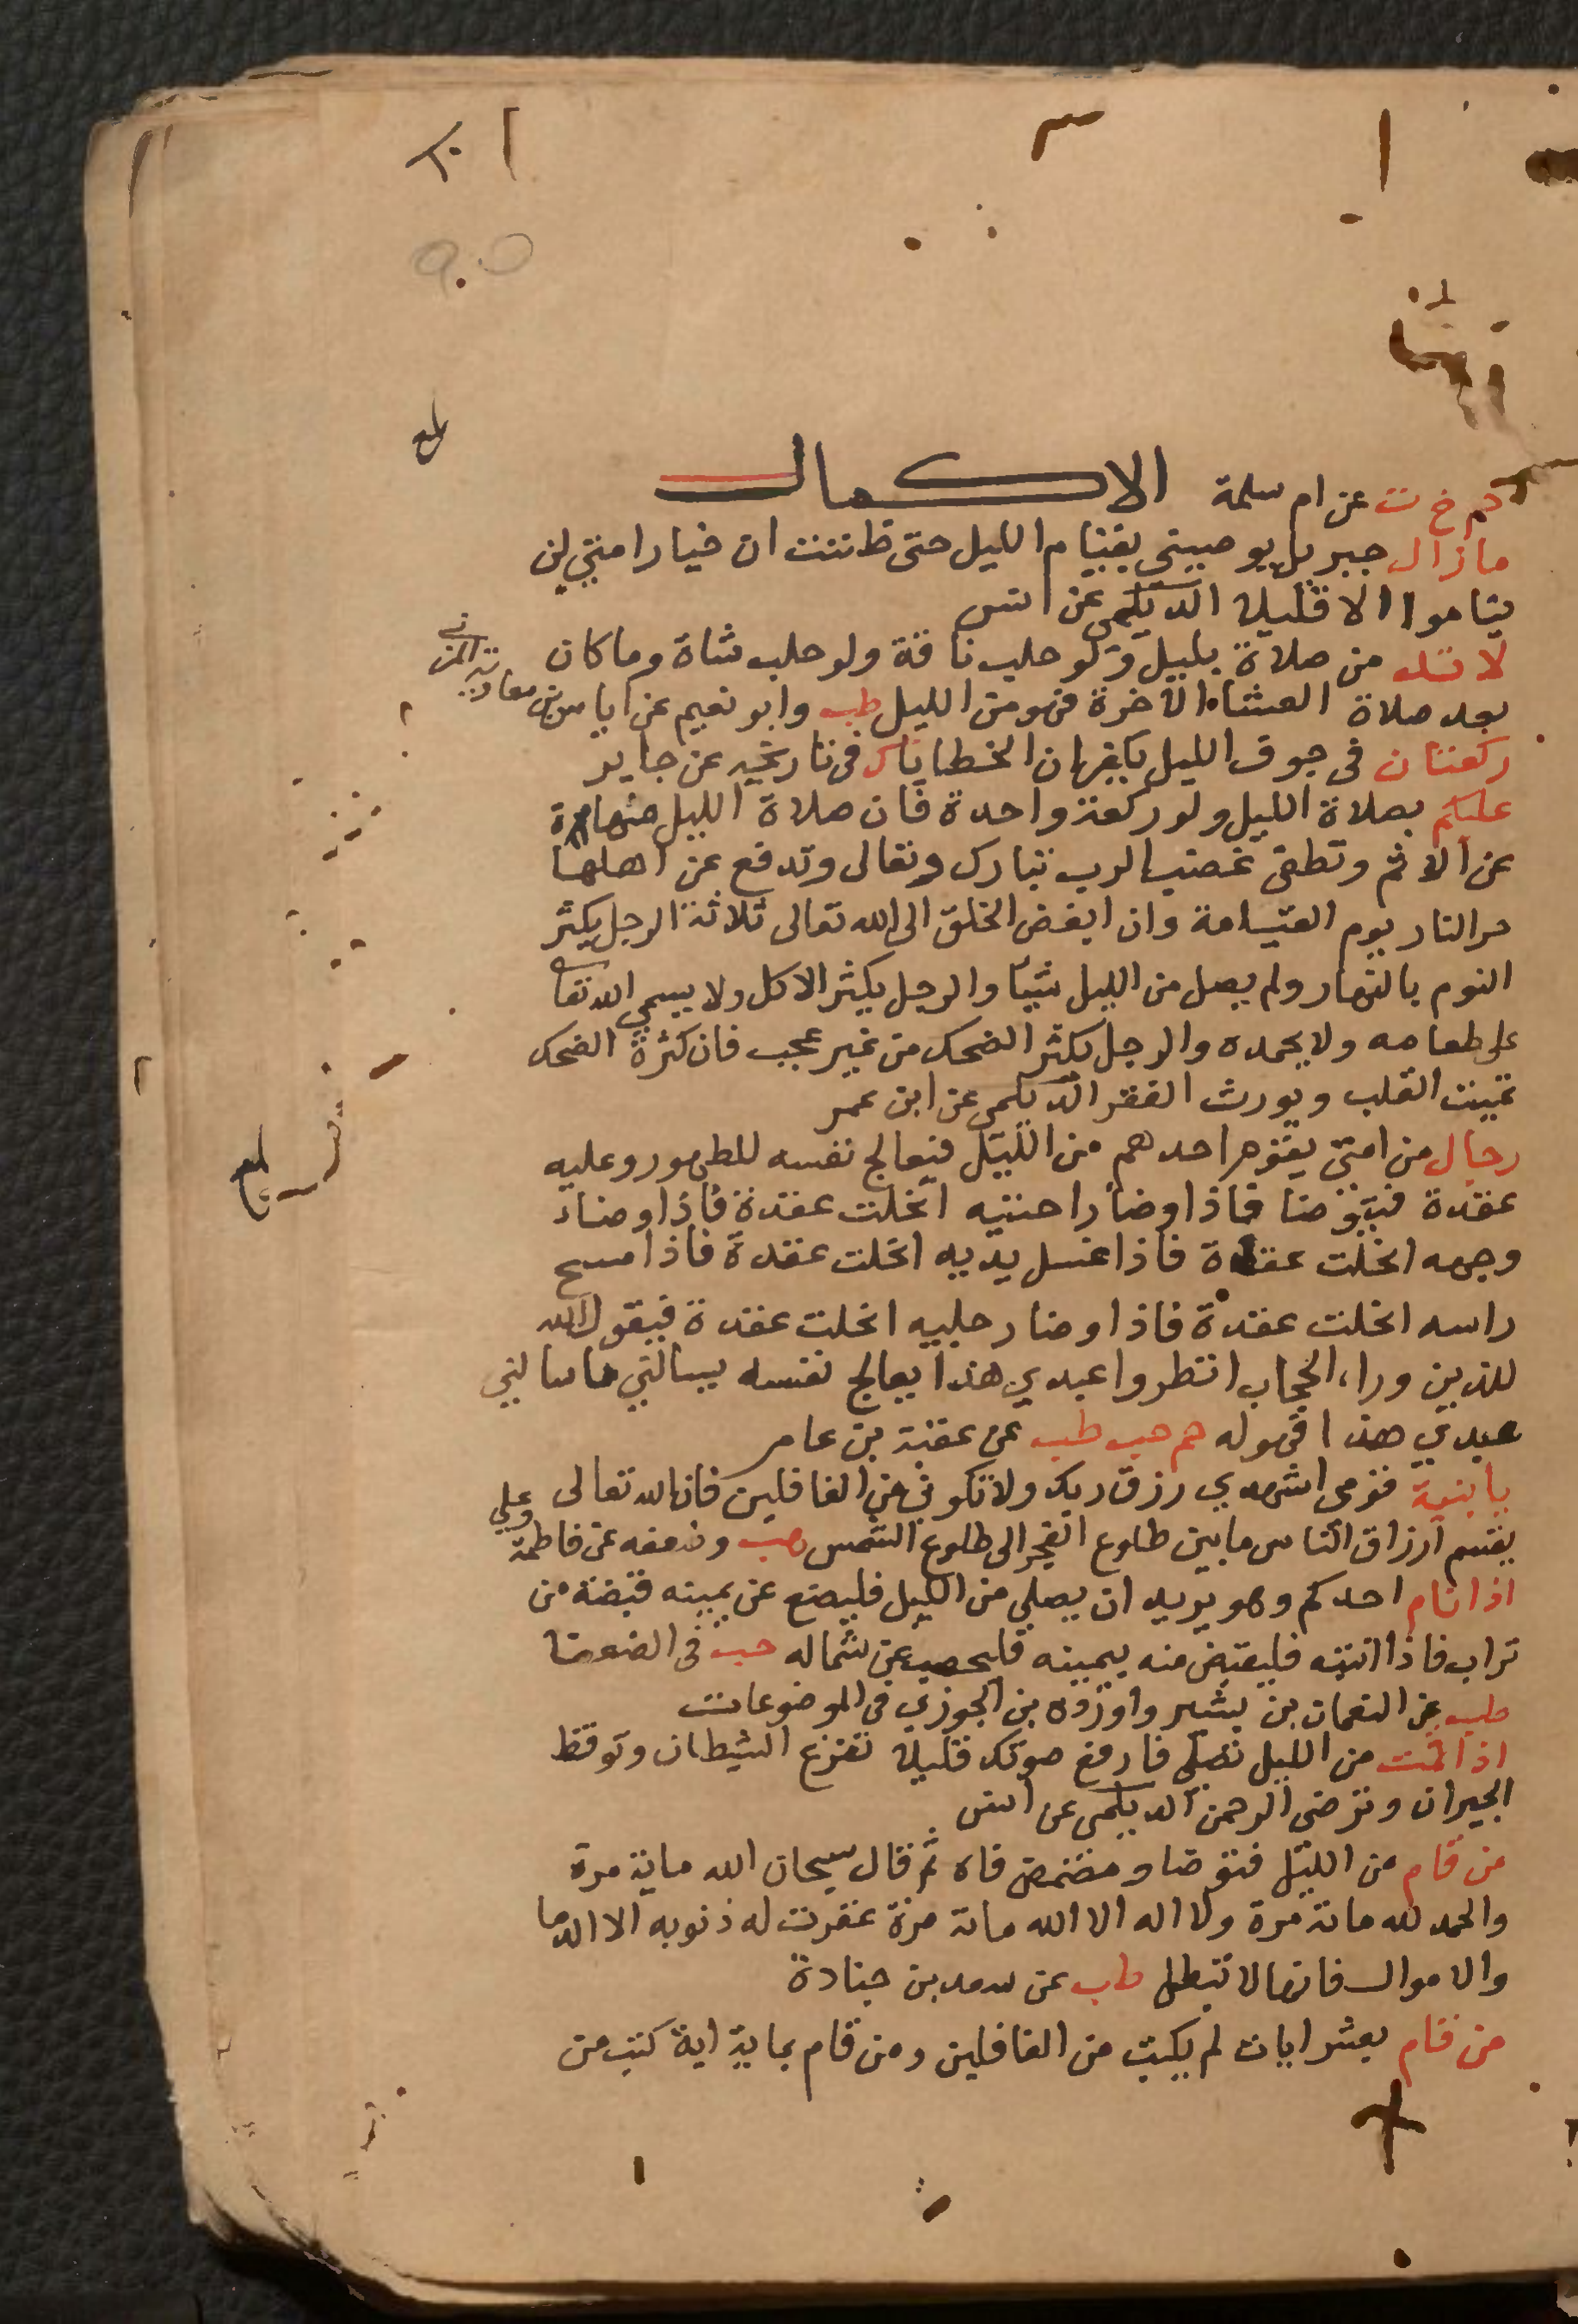 حم خ ت عن ام سلمة الاكمال
ما زال جبريل يوصيني بقيام الليل حتى ظننت ان خيار امتي لن
يناموا الا قليلا الديلمى عن انس
لا بد من صلاة بليل ولو حلب ناقة ولو حلب شاة وما كان
بعد صلاة العشاء الاخرة فهو من الليل طب وابو نعيم عن اياس بن معاوية المزنى
ركعتان فى جوف الليل يكفران الخطايا ك فى تاريخه عن جابر
عليكم بصلاة الليل ولو ركعة واحدة فان صلاة الليل منهاة
عن الاثم وتطفى غضب الرب تبارك وتعالى وتدفع عن اهلها
حر النار يوم القيامة وان ابغض الخلق الى الله تعالى ثلاثة الرجل يكثر
النوم بالنهار ولم يصل من الليل شيأ والرجل يكثر الاكل ولا يسمي الله تعا
على طعامه ولا يحمده والرجل يكثر الضحك من غير عجب فان كثرة الضحك
تميت القلب ويورث الفقر الديلمى عن ابن عمر
رجال من امتى يقوم احدهم من الليل فيعالج نفسه للطهور وعليه
عقدة فيتوضا فاذا وضأ راحتيه انحلت عقدة فاذا وضاء
وجهه انحلت عقدة فاذا غسل يديه انحلت عقدة فاذا مسح
راسه انحلت عقدة فاذا وضا رجليه انحلت عقدة فيقول الله
للذين وراء الحجاب انظروا عبدي هذا يعالج نفسه يسالني ما سالني
عبدي هذا فهو له حم حب طب عن عقبة بن عامر
يا بنية قومى اشهدي رزق ربك ولا تكوني من الغافلين فان الله تعالى
يقسم ارزاق الناس ما بين طلوع الفجر الى طلوع الشمس هب وضعفه عن فاطمة وعلي
اذا نام احدكم وهو يريد ان يصلي من الليل فليضع عن يمينه قبضة من
تراب فاذا انتبه فليقبض منه بيمينه فليحصب عن شماله حب فى الضعفا
طب عن النعمان بن بشير واورده بن الجوزي فى الموضوعات
اذا قمت من الليل تصلي فارفع صوتك قليلا تفزع الشيطان وتوقظ
الجيران وترضى الرحمن الديلمى عن انس
من قام من الليل فتوضا ومضمض فاه ثم قال سبحان الله ماية مرة
والحمد لله ماية مرة ولا اله الا الله ماية مرة غفرت له ذنوبه الا الدما
والاموال فانها لا تبطل طب عن سعد بن جنادة
من قام بعشر ايات لم يكتب من الغافلين ومن قام بماية اية كتب من